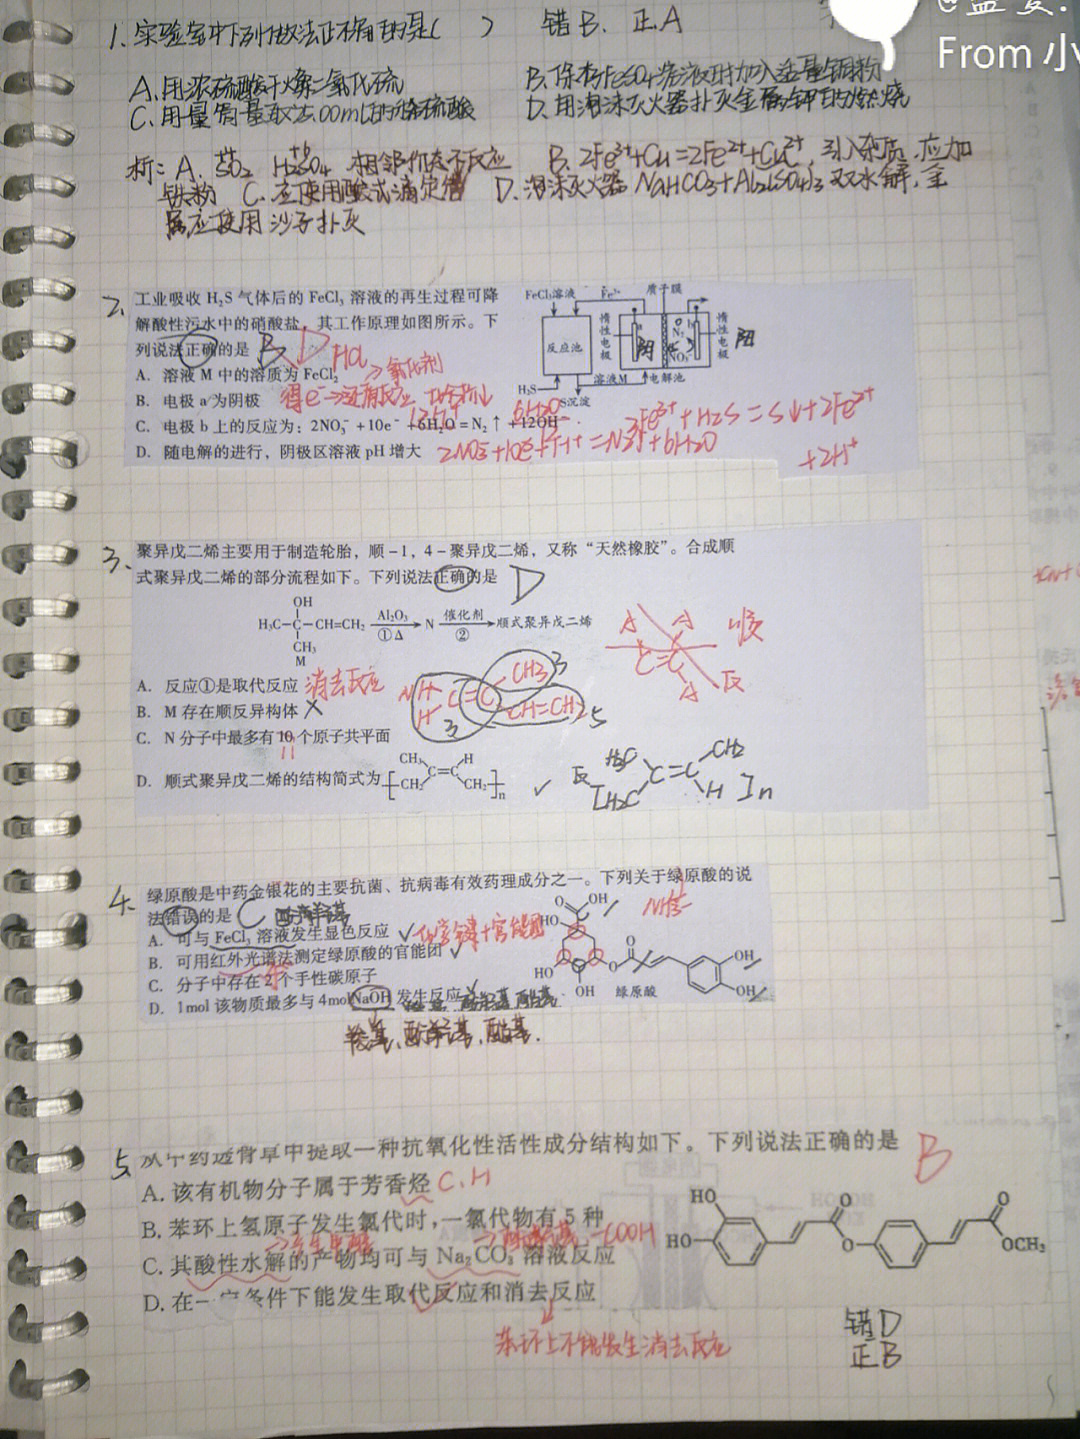 @盖
From 小
1. 实验室中下列做法正确的是( ) 错B. 正A
A. 用浓硫酸干燥二氧化硫
B. 保存FeSO4溶液时加入适量铜粉
C. 用量筒量取25.00mL的稀硫酸
D. 用泡沫灭火器扑灭金属钾的燃烧
析: A. SO2 H2SO4 相邻价态不反应 B. 2Fe3++Cu=2Fe2++Cu2+, 引入杂质, 应加
铁粉 C. 应使用酸式滴定管 D. 泡沫灭火器 NaHCO3+Al2(SO4)3 双水解, 金
属应使用沙子扑灭
2.
工业吸收 H2S 气体后的 FeCl3 溶液的再生过程可降
解酸性污水中的硝酸盐,其工作原理如图所示。下
列说法正确的是 B D
A. 溶液 M 中的溶质为 FeCl2 HCl
B. 电极 a 为阴极 得e-→还原反应
C. 电极 b 上的反应为:2NO3- +10e- +6H2O=N2↑+12OH-
12H+ 6H2O
D. 随电解的进行,阴极区溶液 pH 增大
2Fe3++H2S=S↓+2Fe2+
+2H+
FeCl3溶液 Fe3+ 质子膜
惰性电极
反应池
a b
N2
NO3-
惰性电极
阴
H2S
溶液M
电解池
S沉淀
3.
聚异戊二烯主要用于制造轮胎,顺-1,4-聚异戊二烯,又称“天然橡胶”。合成顺
式聚异戊二烯的部分流程如下。下列说法正确的是 D
OH
H3C-C-CH=CH2 Al2O3 ①△ N 催化剂 ② 顺式聚异戊二烯
CH3
M
A A 顺
C=C
A 反
A. 反应①是取代反应 消去反应
B. M 存在顺反异构体 ×
C. N 分子中最多有10个原子共平面
11
H C=C CH3 3
H CH=CH2 5
3
D. 顺式聚异戊二烯的结构简式为
CH3 H
C=C
CH2 CH2 n
√
反 H3C CH2
C=C
[H2C H ]n
4.
绿原酸是中药金银花的主要抗菌、抗病毒有效药理成分之一。下列关于绿原酸的说
法错误的是 C
A. 可与 FeCl3 溶液发生显色反应 √
化学键+官能团
B. 可用红外光谱法测定绿原酸的官能团 √
C. 分子中存在2个手性碳原子
4
D. 1mol 该物质最多与 4molNaOH 发生反应
羧基、酚羟基、酯基.
O OH
HO
HO
OH
O
O
OH
OH
绿原酸
5.
从中药透骨草中提取一种抗氧化性活性成分结构如下。下列说法正确的是 B
A. 该有机物分子属于芳香烃 C, H
B. 苯环上氢原子发生氯代时,一氯代物有 5 种
-COOH
C. 其酸性水解的产物均可与 Na2CO3 溶液反应
D. 在一定条件下能发生取代反应和消去反应
苯环上不能发生消去反应
HO
HO
O
O
O
OCH3
错D
正B